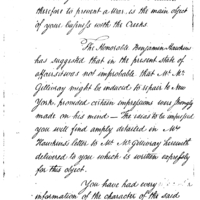 therefore to prevent a war, is the main object
of your business with the Creeks.
The Honorable Benjamin Hawkins
has suggested that in the present state of
affairs it was not improbable that Mr Mc
Gillivray might be induced to repair to New
York, provided certain impressions were strongly
made on his mind — The ideas to be impressed
you will find amply detailed in Mr
Hawkins's letter to Mr McGillivray herewith
delivered to you which is written expressly for
this object.
You have had every
information of the character of the said